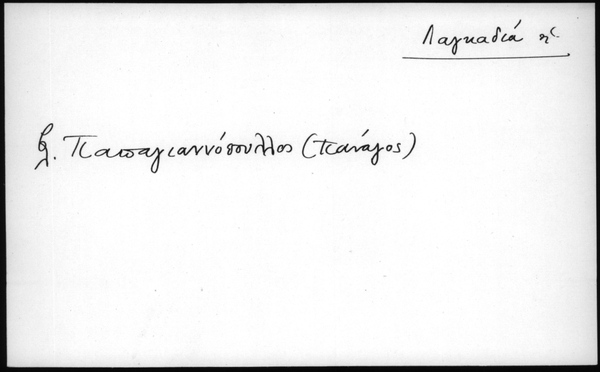 Λαγκαδιά ἡ
βλ. Παπαγιαννόπουλλος (Πανάγος)